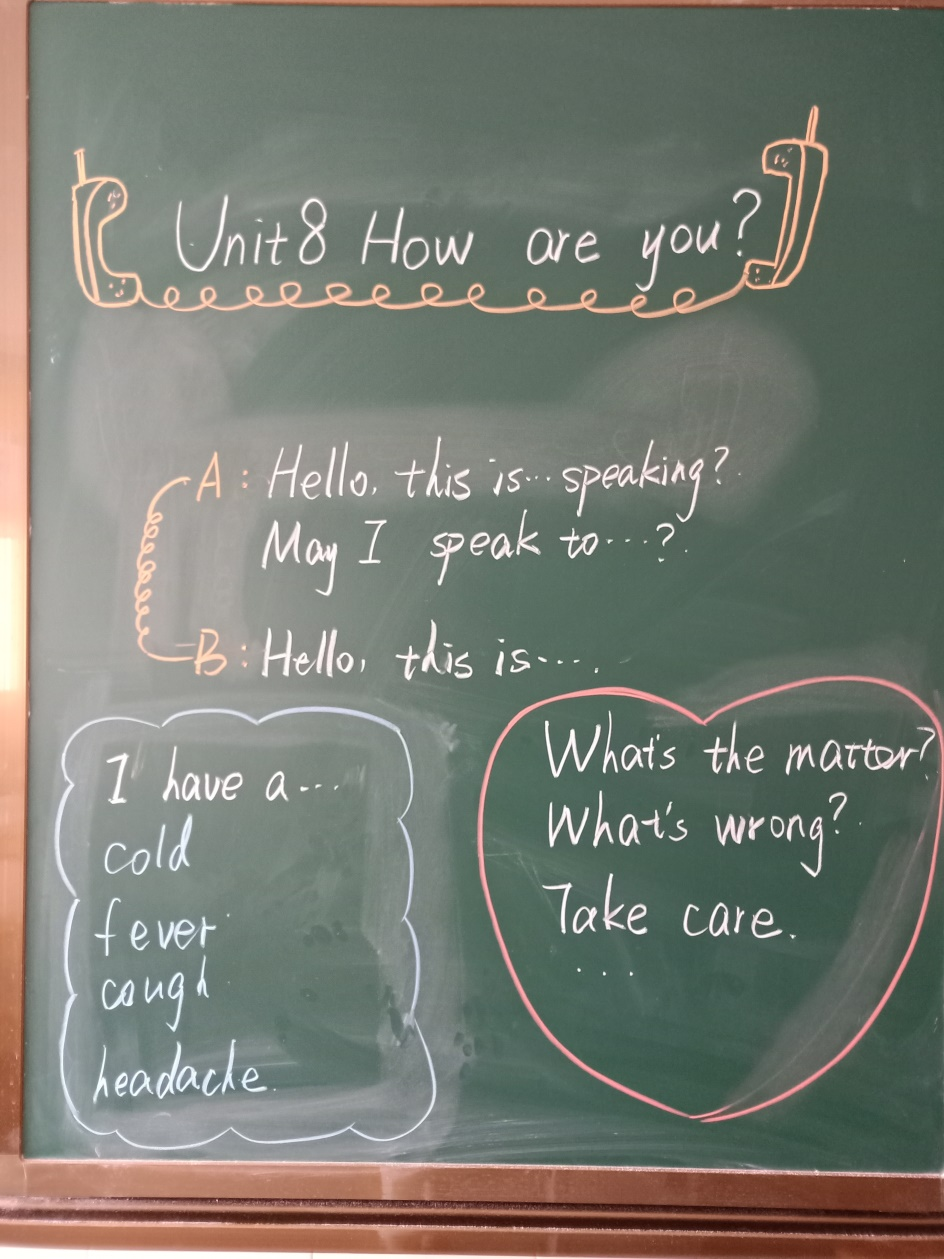 Unit8 How are you?
A: Hello, this is... speaking?
May I speak to...?
B: Hello, this is....
I have a...
cold
fever
cough
headache.
What's the matter?
What's wrong?
Take care.
...